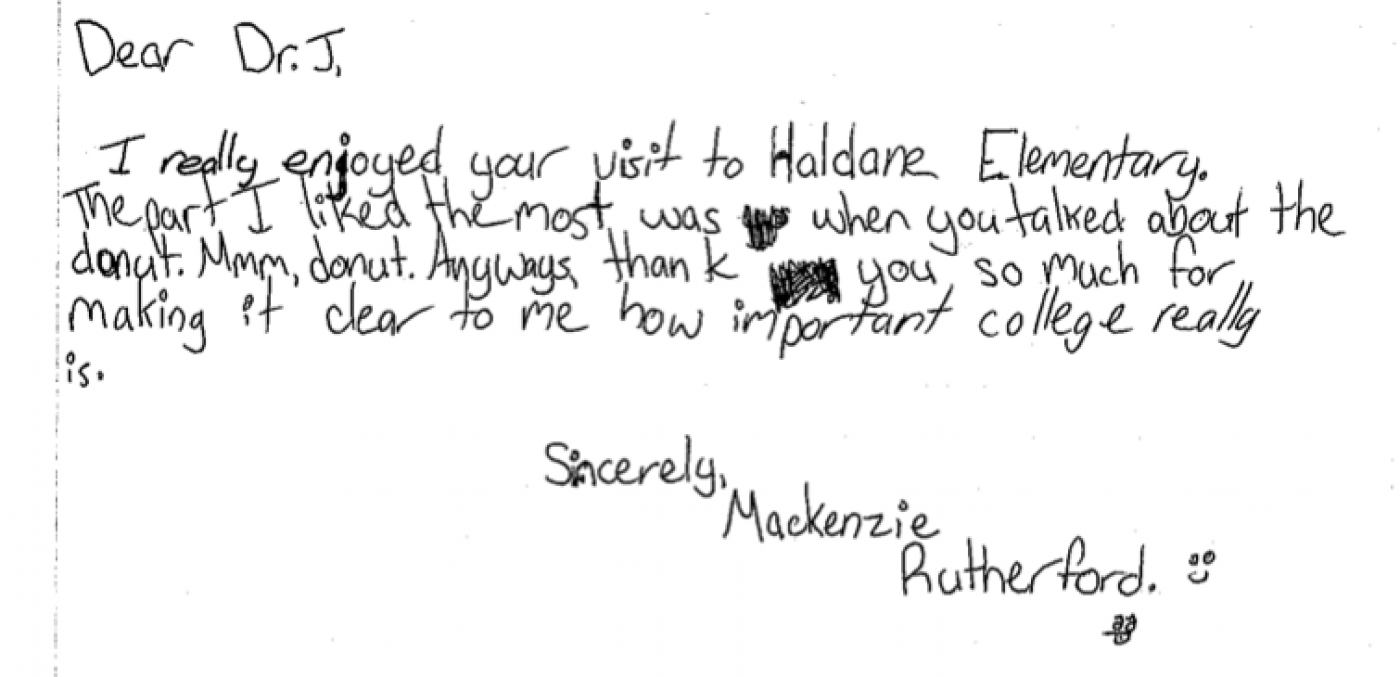 Dear Dr. J,
I really enjoyed your visit to Haldane Elementary.
The part I liked the most was when you talked about the
donut. Mmm, donut. Anyways, thank you so much for
making it clear to me how important college really
is.
Sincerely,
Mackenzie
Rutherford.